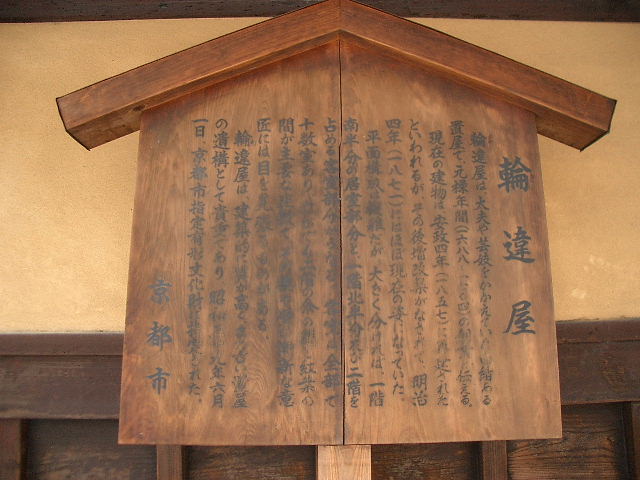 輪違屋
輪違屋は、太夫や芸妓をかかえ
置屋で、元禄年間(一六八八～一七〇四)の創業と伝える。
現在の建物は、安政四年(一八五七)に再建された
といわれるが、その後増改築がなされて、明治
四年(一八七一)にはほぼ現在の姿になっていた。
平面構成は複雑だが、大きく分ければ、一階
南半分の居室部分と、一階北半分及び二階を
占める客室部分からなる。客室は全部で
十数室あり、なかでも二階の傘の間と紅葉の
間が主要な座敷で、その
な意
匠には目を見張るものがある。
輪違屋は、建築的に質が高く、また古い置屋
の遺構として貴重であり、昭和五十九年六月
一日、京都市指定有形文化財に指定された。
京都市